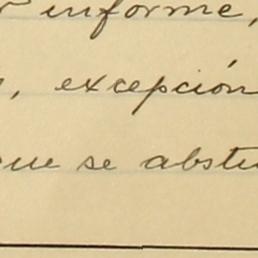 r informe,
, excepción
que se abstu